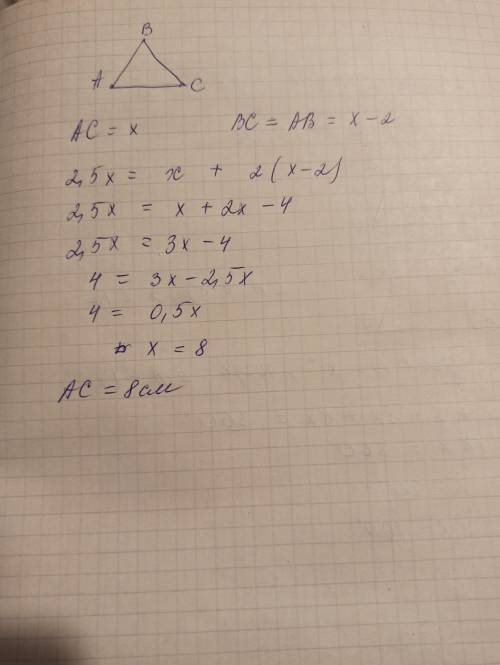 B
A C
AC = x BC = AB = x - 2
2,5x = x + 2(x-2)
2,5x = x + 2x - 4
2,5x = 3x - 4
4 = 3x - 2,5x
4 = 0,5x
x = 8
AC = 8см